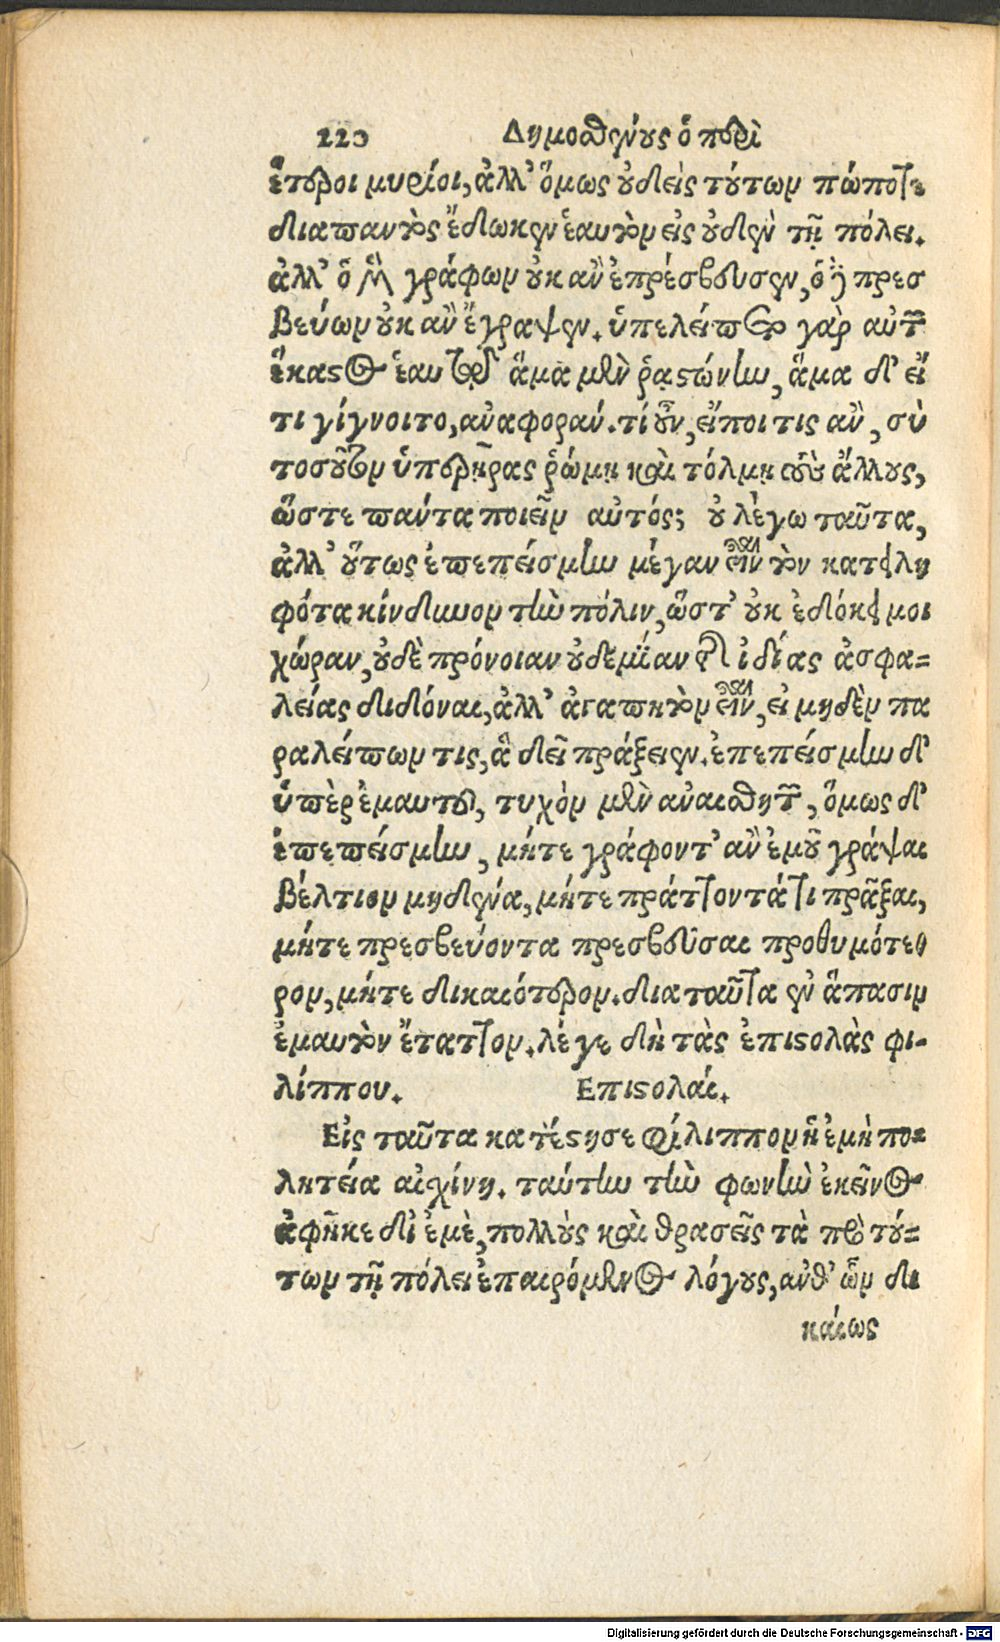 220 Δημοσθένους ὁ περὶ
ἕτεροι μυρίοι, ἀλλ' ὅμως οὐδεὶς τούτων πώποτε
διαπαντὸς ἔδωκεν ἑαυτὸν εἰς οὐδὲν τῇ πόλει.
ἀλλ' ὁ μὲν γράφων οὐκ ἂν ἐπρέσβευσεν, ὁ δὲ πρεσ
βεύων οὐκ ἂν ἔγραψεν. ὑπελείπετο γὰρ αὐτῶν
ἕκαστος ἑαυτῷ ἅμα μὲν ῥᾳστώνην, ἅμα δ' εἴ
τι γίγνοιτο, ἀναφοράν. τί οὖν, εἴποι τις ἂν, σὺ
τοσοῦτον ὑπερῇρας ῥώμῃ καὶ τόλμῃ τοὺς ἄλλους,
ὥστε πάντα ποιεῖν αὐτός; οὐ λέγω ταῦτα,
ἀλλ' οὕτως ἐπεπείσμην μέγαν εἶναι τὸν κατειλη
φότα κίνδυνον τὴν πόλιν, ὥστ' οὐκ ἐδόκει μοι
χώραν, οὐδὲ πρόνοιαν οὐδεμίαν τῆς ἰδίας ἀσφα=
λείας διδόναι, ἀλλ' ἀγαπητὸν εἶναι, εἰ μηδὲν πα
ραλείπων τις, ἃ δεῖ πράξειεν. ἐπεπείσμην δ'
ὑπὲρ ἐμαυτοῦ, τυχὸν μὲν ἀναισθητῶν, ὅμως δ'
ἐπεπείσμην, μήτε γράφοντ' ἂν ἐμοῦ γράψαι
βέλτιον μηδένα, μήτε πράττοντά τι πρᾶξαι,
μήτε πρεσβεύοντα πρεσβεῦσαι προθυμότε
ρον, μήτε δικαιότερον. διαταῦτα ἐν ἅπασιν
ἐμαυτὸν ἔταττον. λέγε δὴ τὰς ἐπιστολὰς φι-
λίππου. Επιστολαί.
Εἰς ταῦτα κατέστησε φίλιππον ἡ ἐμὴ πο=
λητεία αἰσχίνη. ταύτην τὴν φωνὴν ἐκεῖνος
ἀφῆκε δι' ἐμὲ, πολλοὺς καὶ θρασεῖς τὰ πρὸ τού=
των τῇ πόλει ἐπαιρόμενος λόγους, ἀνθ' ὧν δι
καίως
Digitalisierung gefördert durch die Deutsche Forschungsgemeinschaft - DFG